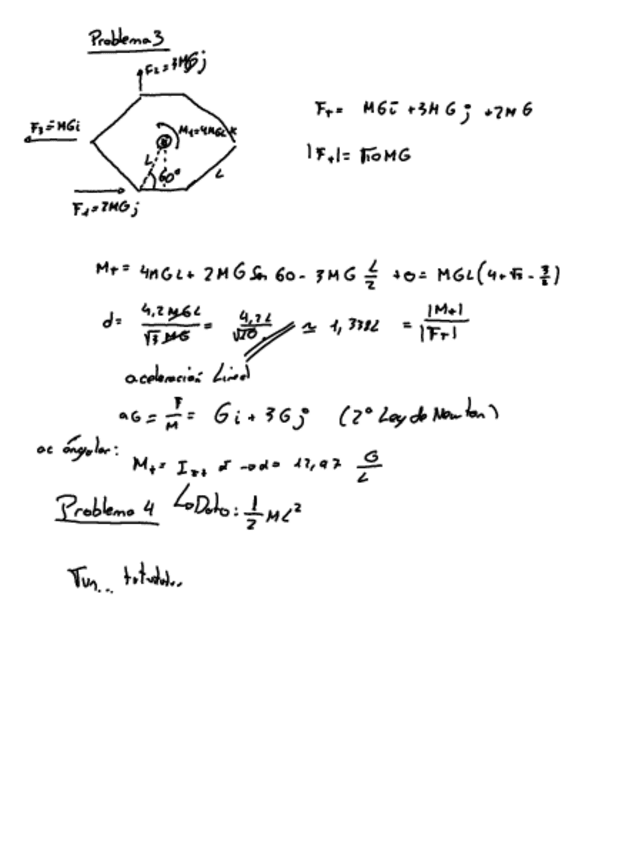 Problema 3
F₂=3MGj
F₃=MGi
M₁=4MGLK
L
60°
L
F₁=2MGj
F+= MGi +3MGj +2MG
|F+|= √10MG
M+= 4MGL+ 2MG Sen 60- 3MG L/2 +0= MGL(4+√3 - 3/2)
d= 4,2MGL/√3MG = 4,2L/√10 ≃ 1,338L = |M+|/|F+|
aceleración Lineal
aG= F/M = Gi+3Gj (2º Ley de Newton)
ac ángular:
M+= 12,97 G/L
Problema 4 Dato: 1/2 ML²